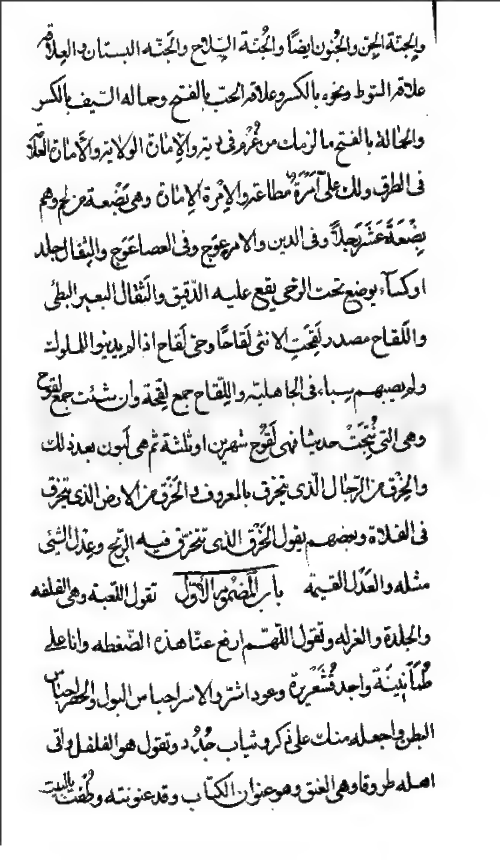 والجنة الجن والجنون ايضًا والجُنة السلاح والجَنه البستان والعِلاقه
علاقه السوط ونحوه بالكسر وعلاقه الحب بالفتح وحماله السيف بالكسر
والحَمالة بالفتح ما لزمك من غُرم فى دية والإمارة الولاية والأمارة العلامة
فى الطرق ولك على أَمرَةٌ مطاعة والإمْرة الإمارة وهى بَضْعة من لحم وهم
بِضْعَةَ عَشَرَ رَجلاً وفى الدين والامر عِوَج وفى العصا عَوَج والثِفال جلد
او كساء يوضع تحت الرحى يقع عليه الدقيق والثَفال البعير البطئ
واللَقاح مصدر لَقِحَتِ الانثى لَقاحًا وحى لَقاح اذا لم يدينوا للملوك
ولم يصبهم سباء فى الجاهلية واللِقاح جمع لِقْحة وان شئت جمع لقوح
وهى التى نُتِجَتْ حديثا فهى لَقُوح شهرين او ثلثة ثم هى لَبون بعد ذلك
والخِرْق من الرجال الذى يتخرق بالمعروف والخَرْق من الارض الذى يتخرق
فى الفلاة وبعضهم يقول الخَرْق الذى تتخرق فيه الريح وعِدْل الشئ
مثله والعَدْل القيمة باب المضموم الأول تقول اللعبة وهى القلفه
والجلدة والغرله وتقول اللهم ارفع عنا هذه الضغطه وانا على
طُمَأْنِينَة واجد قُشَعْرِيرة وعود اسر والاسر احتباس البول والحصر احتباس
البطن واجعله منك على ذكر وثياب جُدُد وتقول هو الفلفل واتى
اهله طروقا وهى العنق وهو عنوان الكتاب وقد عنونته وطُفْت بالبيت